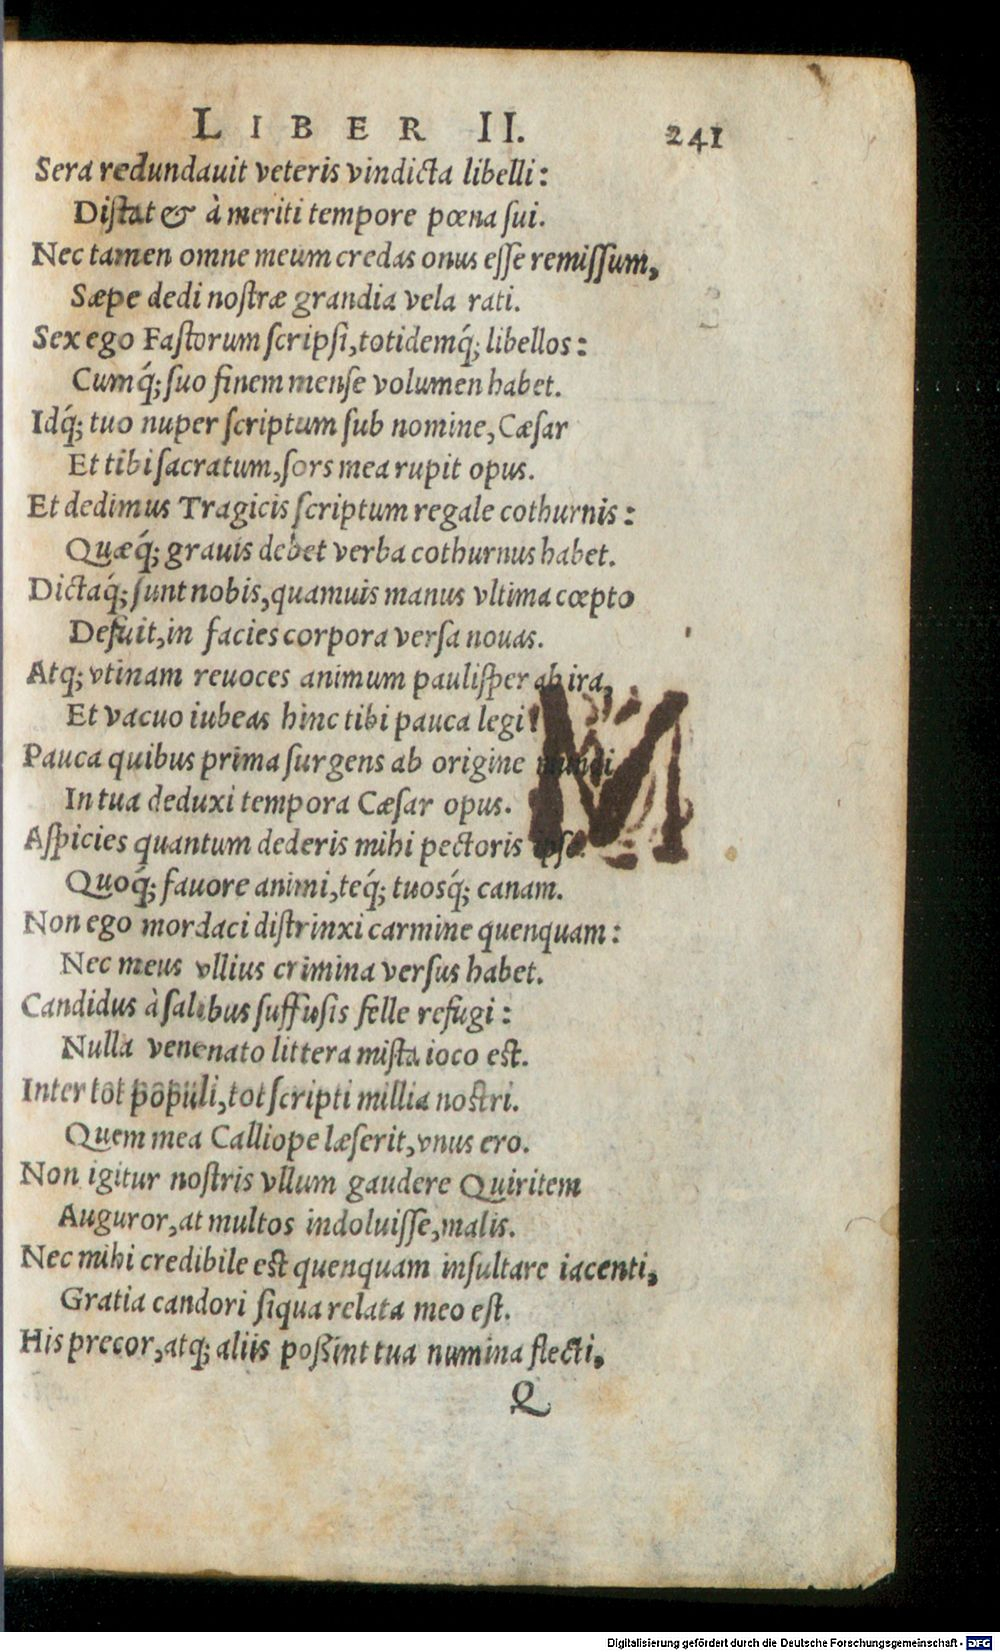 LIBER II. 241
Sera redundauit veteris vindicta libelli:
Distat & à meriti tempore pœna sui.
Nec tamen omne meum credas onus esse remissum,
Sæpe dedi nostræ grandia vela rati.
Sex ego Fastorum scripsi, totidemq́; libellos:
Cumq́; suo finem mense volumen habet.
Idq́; tuo nuper scriptum sub nomine, Cæsar
Et tibi sacratum, sors mea rupit opus.
Et dedimus Tragicis scriptum regale cothurnis:
Quæq́; grauis debet verba cothurnus habet.
Dictaq́; sunt nobis, quamuis manus vltima cœpto
Defuit, in facies corpora versa nouas.
Atq; vtinam reuoces animum paulisper ab ira,
Et vacuo iubeas hinc tibi pauca legi!
Pauca quibus prima surgens ab origine mundi
In tua deduxi tempora Cæsar opus.
Aspicies quantum dederis mihi pectoris ipse
Quoq́; fauore animi, teq́; tuosq́; canam.
Non ego mordaci distrinxi carmine quenquam:
Nec meus vllius crimina versus habet.
Candidus à salibus suffusis felle refugi:
Nulla venenato littera mista ioco est.
Inter tot populi, tot scripti millia nostri.
Quem mea Calliope læserit, vnus ero.
Non igitur nostris vllum gaudere Quiritem
Auguror, at multos indoluisse, malis.
Nec mihi credibile est quenquam insultare iacenti,
Gratia candori siqua relata meo est.
His precor, atq; aliis poßint tua numina flecti,
Q
Digitalisierung gefördert durch die Deutsche Forschungsgemeinschaft - DFG